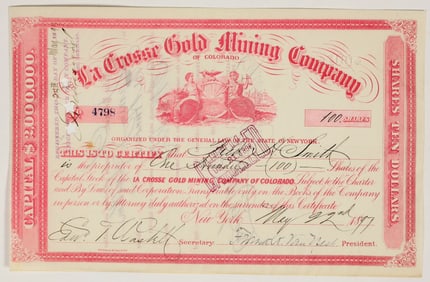 La Crosse Gold Mining Company
OF COLORADO.
4798
100 SHARES
ORGANIZED UNDER THE GENERAL LAW OF THE STATE OF NEW YORK.
CAPITAL $2,000,000.
SHARES TEN DOLLARS.
THIS IS TO CERTIFY that Smith
is the proprietor of One Hundred (100) Shares of the
Capital Stock of the LA CROSSE GOLD MINING COMPANY OF COLORADO. Subject to the Charter
and By Laws of said Corporation, transferable only on the Books of the Company
in person or by Attorney duly authorized on the surrender of this Certificate
New York May 22nd 18
Secretary. President.